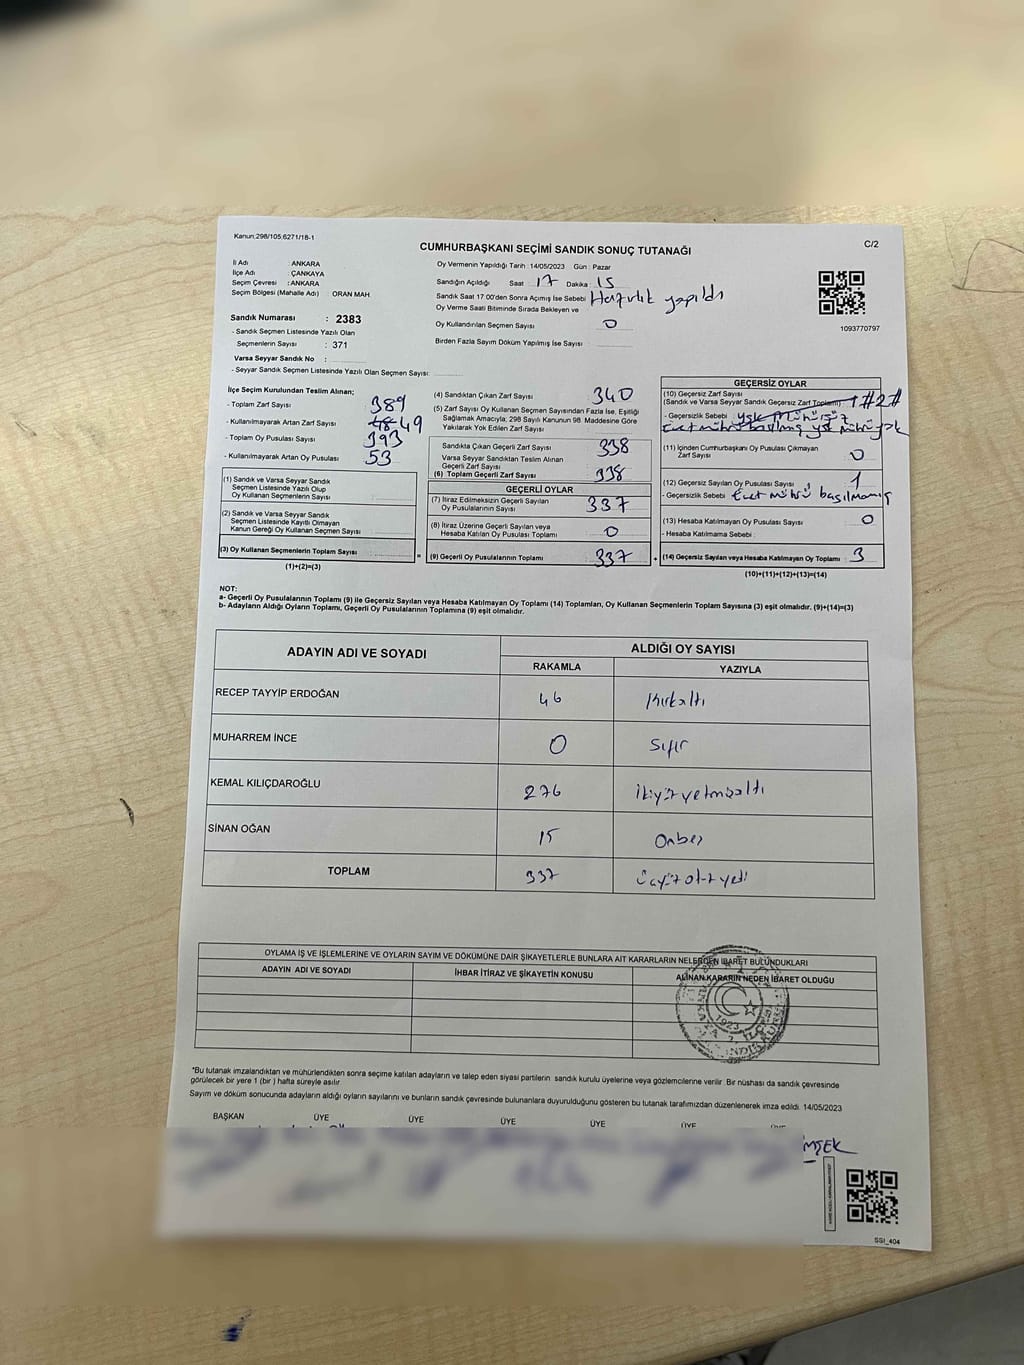 Kanun:298/105.6271/18-1
C/2
CUMHURBAŞKANI SEÇİMİ SANDIK SONUÇ TUTANAĞI
İl Adı : ANKARA
İlçe Adı : ÇANKAYA
Seçim Çevresi : ANKARA
Seçim Bölgesi (Mahalle Adı) : ORAN MAH.
Sandık Numarası : 2383
- Sandık Seçmen Listesinde Yazılı Olan
Seçmenlerin Sayısı : 371
Varsa Seyyar Sandık No :
- Seyyar Sandık Seçmen Listesinde Yazılı Olan Seçmen Sayısı:
Oy Vermenin Yapıldığı Tarih : 14/05/2023 Gün : Pazar
Sandığın Açıldığı Saat 17 Dakika : 15
Sandık Saat 17:00'den Sonra Açımış İse Sebebi Hazırlık yapıldı
Oy Verme Saati Bitiminde Sırada Bekleyen ve
Oy Kullandırılan Seçmen Sayısı 0
Birden Fazla Sayım Döküm Yapılmış İse Sayısı :
1093770797
İlçe Seçim Kurulundan Teslim Alınan;
- Toplam Zarf Sayısı 389
- Kullanılmayarak Artan Zarf Sayısı 48 49
- Toplam Oy Pusulası Sayısı 393
- Kullanılmayarak Artan Oy Pusulası 53
(1) Sandık ve Varsa Seyyar Sandık
Seçmen Listesinde Yazılı Olup
Oy Kullanan Seçmenlerin Sayısı
(2) Sandık ve Varsa Seyyar Sandık
Seçmen Listesinde Kayıtlı Olmayan
Kanun Gereği Oy Kullanan Seçmen Sayısı
(3) Oy Kullanan Seçmenlerin Toplam Sayısı
(1)+(2)=(3)
(4) Sandıktan Çıkan Zarf Sayısı 340
(5) Zarf Sayısı Oy Kullanan Seçmen Sayısından Fazla İse, Eşitliği
Sağlamak Amacıyla; 298 Sayılı Kanunun 98. Maddesine Göre
Yakılarak Yok Edilen Zarf Sayısı
Sandıkta Çıkan Geçerli Zarf Sayısı 338
Varsa Seyyar Sandıktan Teslim Alınan
Geçerli Zarf Sayısı
(6) Toplam Geçerli Zarf Sayısı 338
GEÇERLİ OYLAR
(7) İtiraz Edilmeksizin Geçerli Sayılan
Oy Pusulalarının Sayısı 337
(8) İtiraz Üzerine Geçerli Sayılan veya
Hesaba Katılan Oy Pusulası Toplamı 0
= (9) Geçerli Oy Pusulalarının Toplamı 337 +
GEÇERSİZ OYLAR
(10) Geçersiz Zarf Sayısı
(Sandık ve Varsa Seyyar Sandık Geçersiz Zarf Toplamı) 1 #2#
- Geçersizlik Sebebi ysk mühürsüz
Evet mührü basılmış ysk mührü yok
(11) İçinden Cumhurbaşkanı Oy Pusulası Çıkmayan
Zarf Sayısı 0
(12) Geçersiz Sayılan Oy Pusulası Sayısı 1
- Geçersizlik Sebebi Evet mührü basılmamış
(13) Hesaba Katılmayan Oy Pusulası Sayısı 0
- Hesaba Katılmama Sebebi
(14) Geçersiz Sayılan veya Hesaba Katılmayan Oy Toplamı 3
(10)+(11)+(12)+(13)=(14)
NOT:
a- Geçerli Oy Pusulalarının Toplamı (9) ile Geçersiz Sayılan veya Hesaba Katılmayan Oy Toplamı (14) Toplamları, Oy Kullanan Seçmenlerin Toplam Sayısına (3) eşit olmalıdır. (9)+(14)=(3)
b- Adayların Aldığı Oyların Toplamı, Geçerli Oy Pusulalarının Toplamına (9) eşit olmalıdır.
ADAYIN ADI VE SOYADI
ALDIĞI OY SAYISI
RAKAMLA YAZIYLA
RECEP TAYYİP ERDOĞAN 46 Kırkaltı
MUHARREM İNCE 0 Sıfır
KEMAL KILIÇDAROĞLU 276 İkiyüzyetmişaltı
SİNAN OĞAN 15 Onbeş
TOPLAM 337 Üçyüzotuzyedi
OYLAMA İŞ VE İŞLEMLERINE VE OYLARIN SAYIM VE DÖKÜMÜNE DAİR ŞİKAYETLERLE BUNLARA AIT KARARLARIN NELERDEN İBARET BULUNDUKLARI
ADAYIN ADI VE SOYADI İHBAR İTİRAZ VE ŞİKAYETİN KONUSU ALINAN KARARIN NEDEN İBARET OLDUĞU
1923
*Bu tutanak imzalandıktan ve mühürlendikten sonra seçime katılan adayların ve talep eden siyasi partilerin sandık kurulu üyelerine veya gözlemcilerine verilir. Bir nüshası da sandık çevresinde
görülecek bir yere 1 (bir ) hafta süreyle asılır.
Sayım ve döküm sonucunda adayların aldığı oyların sayılarını ve bunların sandık çevresinde bulunanlara duyurulduğunu gösteren bu tutanak tarafımızdan düzenlenerek imza edildi. 14/05/2023
BAŞKAN ÜYE ÜYE ÜYE ÜYE ÜYE
SSI_404